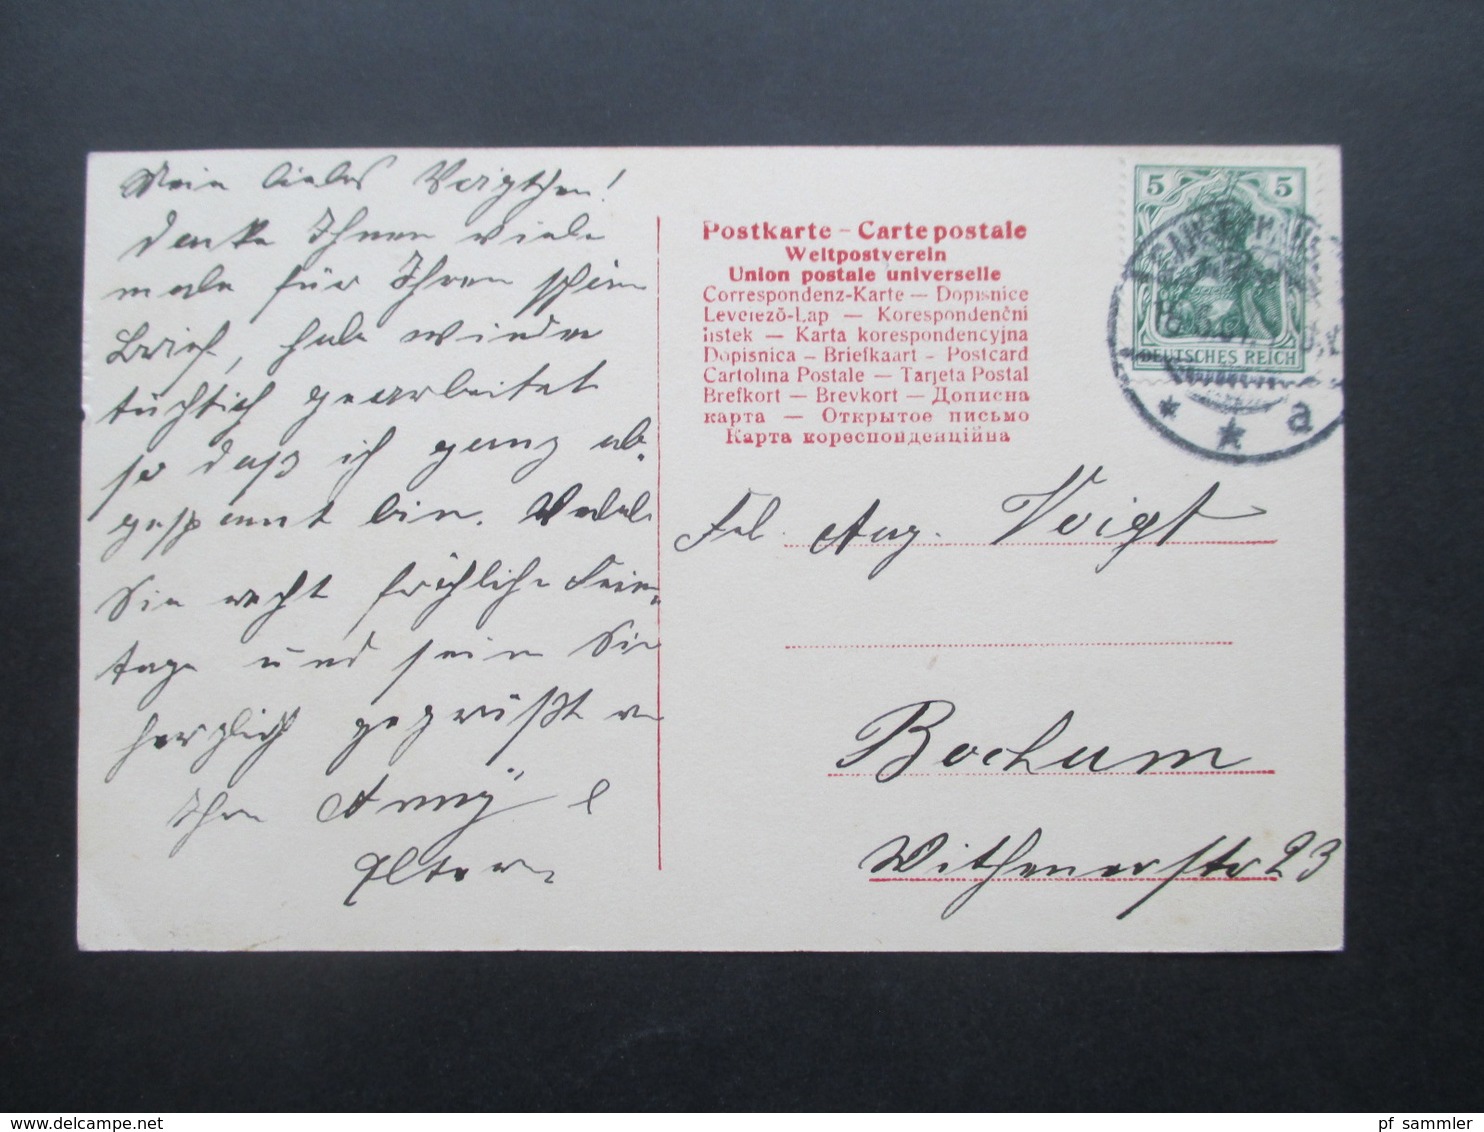 Mein liebes Voigtchen!
danke Ihnen viele
male für Ihren schönen
Brief, habe wieder
tüchtig gearbeitet
so daß ich ganz ab-
gespannt bin.
Sie recht fröhliche Feier-
tage und sein Sie
herzlich gegrüßt v
Ihre Anny &
Eltern
Postkarte – Carte postale
Weltpostverein
Union postale universelle
Correspondenz-Karte — Dopisnice
Levelező-Lap — Korespondenční
listek — Karta korespondencyjna
Dopisnica — Briefkaart — Postcard
Cartolina Postale — Tarjeta Postal
Brefkort — Brevkort — Дописна
карта — Открытое письмо
Карта кореспонденційна
5 5
DEUTSCHES REICH
a
Frl. Aug. Voigt
Bochum
Wittenerstr 23
pf_sammler